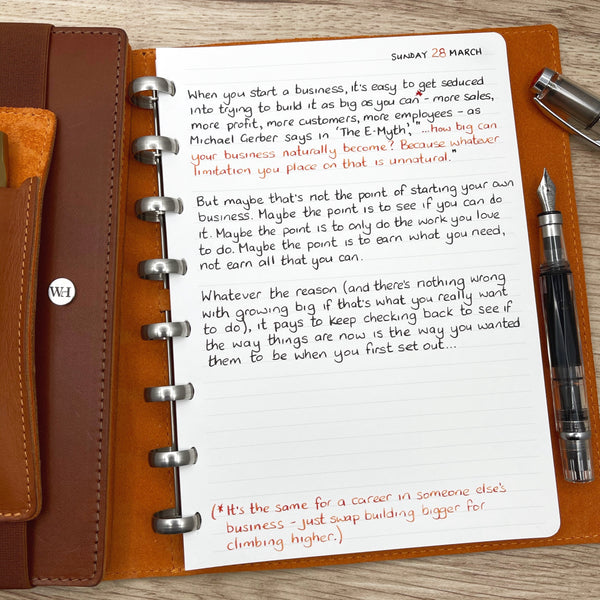 SUNDAY 28 MARCH
When you start a business, it's easy to get seduced
into trying to build it as big as you can* - more sales,
more profit, more customers, more employees - as
Michael Gerber says in 'The E-Myth', "...how big can
your business naturally become? Because whatever
limitation you place on that is unnatural."
But maybe that's not the point of starting your own
business. Maybe the point is to see if you can do
it. Maybe the point is to only do the work you love
to do. Maybe the point is to earn what you need,
not earn all that you can.
Whatever the reason (and there's nothing wrong
with growing big if that's what you really want
to do), it pays to keep checking back to see if
the way things are now is the way you wanted
them to be when you first set out...
(*It's the same for a career in someone else's
business - just swap building bigger for
climbing higher.)
WH